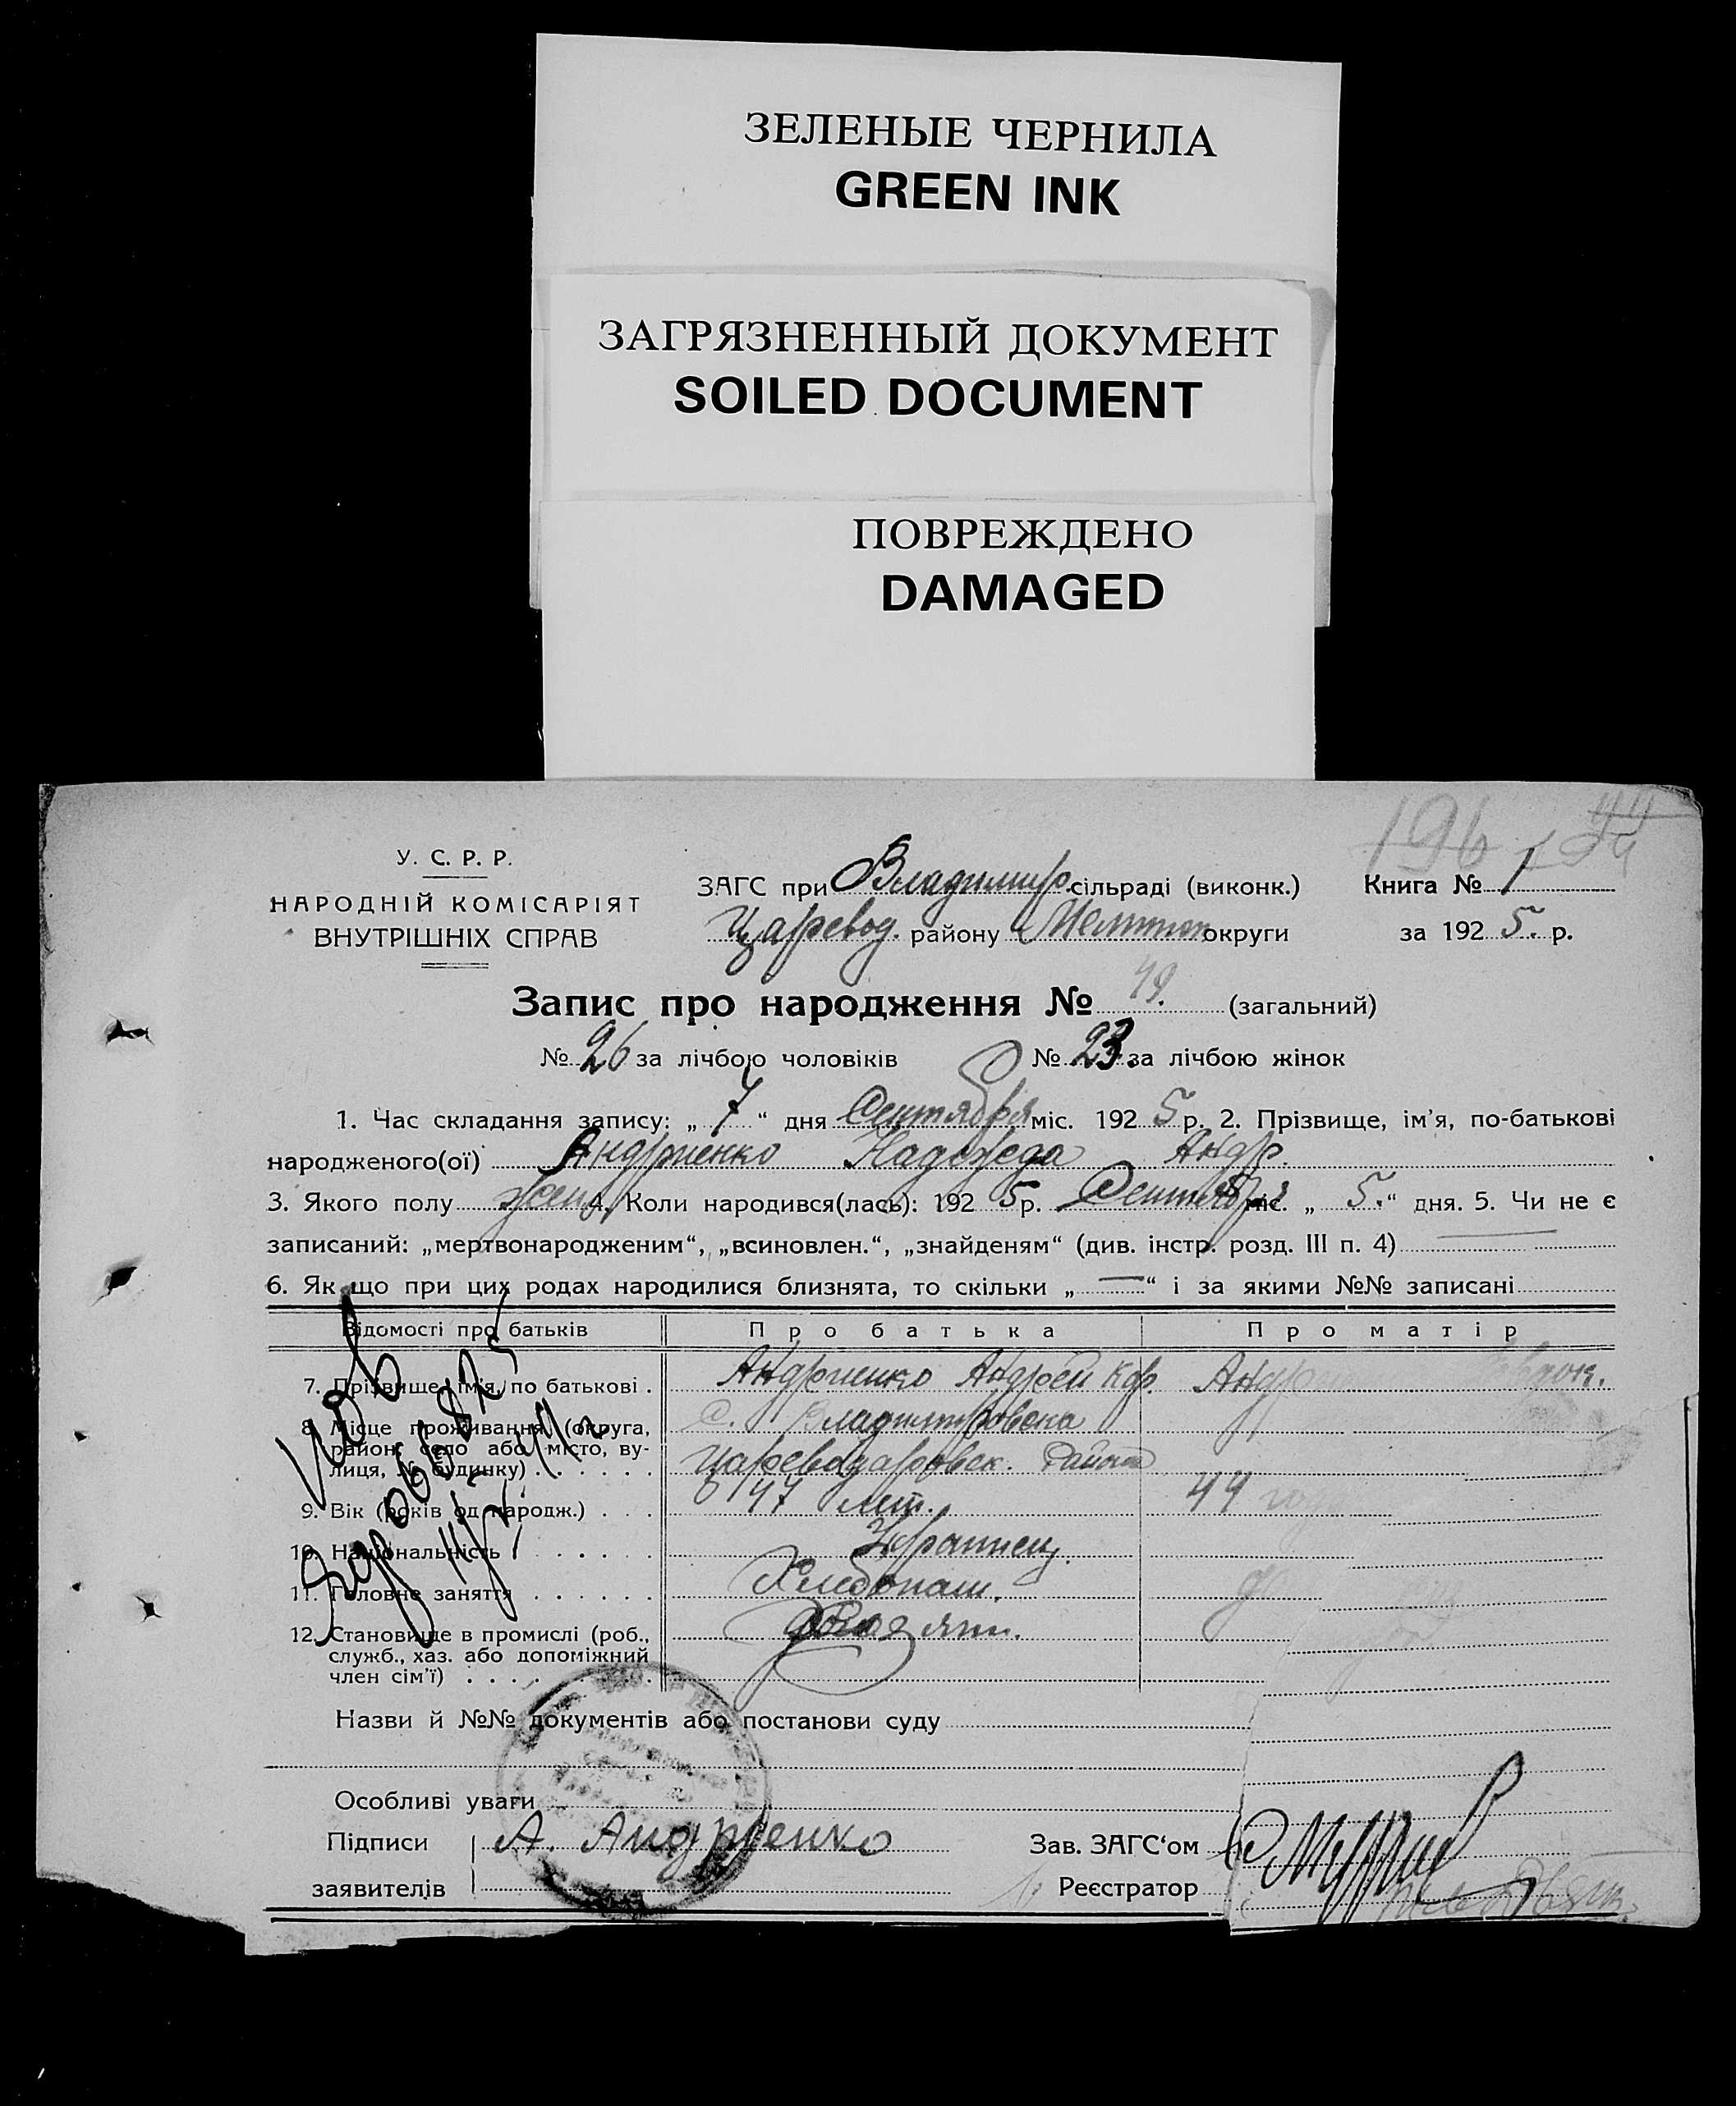 ЗЕЛЕНЫЕ ЧЕРНИЛА
GREEN INK
ЗАГРЯЗНЕННЫЙ ДОКУМЕНТ
SOILED DOCUMENT
ПОВРЕЖДЕНО
DAMAGED
196
У. С. Р. Р.
НАРОДНІЙ КОМІСАРІЯТ
ВНУТРІШНІХ СПРАВ
ЗАГС при Владимир. сільраді (виконк.) Книга № 1
Царевод. району Мелитоп округи за 192 5. р.
Запис про народження № 49. (загальний)
№ 26 за лічбою чоловіків № 23. за лічбою жінок
1. Час складання запису: „ 7 “ дня Сентября міс. 192 5 р. 2. Прізвище, ім’я, по-батькові
народженого(ої) Андриенко Надежда Андр.
3. Якого полу жен. 4. Коли народився(лась): 192 5 р. Сентября міс. „ 5. “ дня. 5. Чи не є
записаний: „мертвонародженим“, „всиновлен.“, „знайденям“ (див. інстр. розд. III п. 4)
6. Як що при цих родах народилися близнята, то скільки „ — “ і за якими №№ записані
Відомості про батьків Про батька Про матір
7. Прізвище, ім’я, по батькові . Андриенко Андрей Андр
8. Місце проживання (округа, С. Владимировка
район, село або місто, ву- Царевадаровск. Район
лиця, № будинку) . . . . . .
9. Вік (років од народж.) . . . 47 лет. 44
10. Національність . . . . . . Украинец.
11. Головне заняття . . . . . . Хлебопаш.
12. Становище в промислі (роб.,
служб., хаз. або допоміжний
член сім’ї) . . . .
Назви й №№ документів або постанови суду
Особливі уваги
Підписи А. Андриенко Зав. ЗАГС‘ом
заявителів Реєстратор